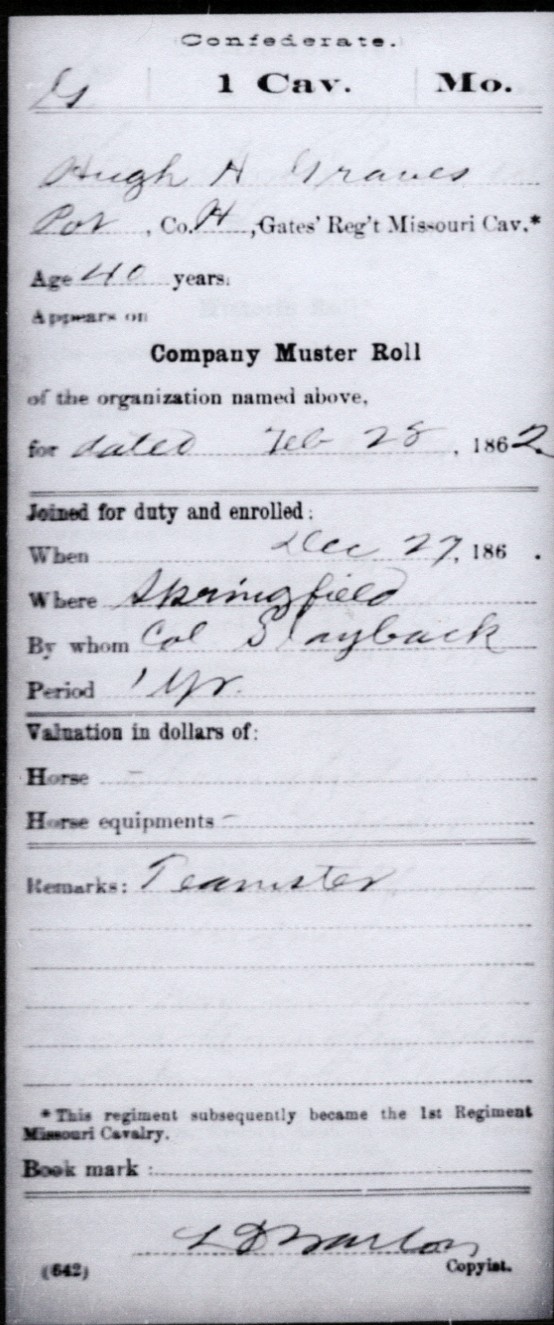 Confederate.
G 1 Cav. Mo.
Hugh H Graves
Pvt, Co. H, Gates' Reg't Missouri Cav.*
Age 40 years.
Appears on
Company Muster Roll
of the organization named above,
for dated Feb 28, 1862.
Joined for duty and enrolled:
When Dec 27, 186 .
Where Springfield
By whom Col Slayback
Period 1 Yr.
Valuation in dollars of:
Horse -
Horse equipments -
Remarks: Teamster
*This regiment subsequently became the 1st Regiment
Missouri Cavalry.
Book mark:
(642) Copyist.